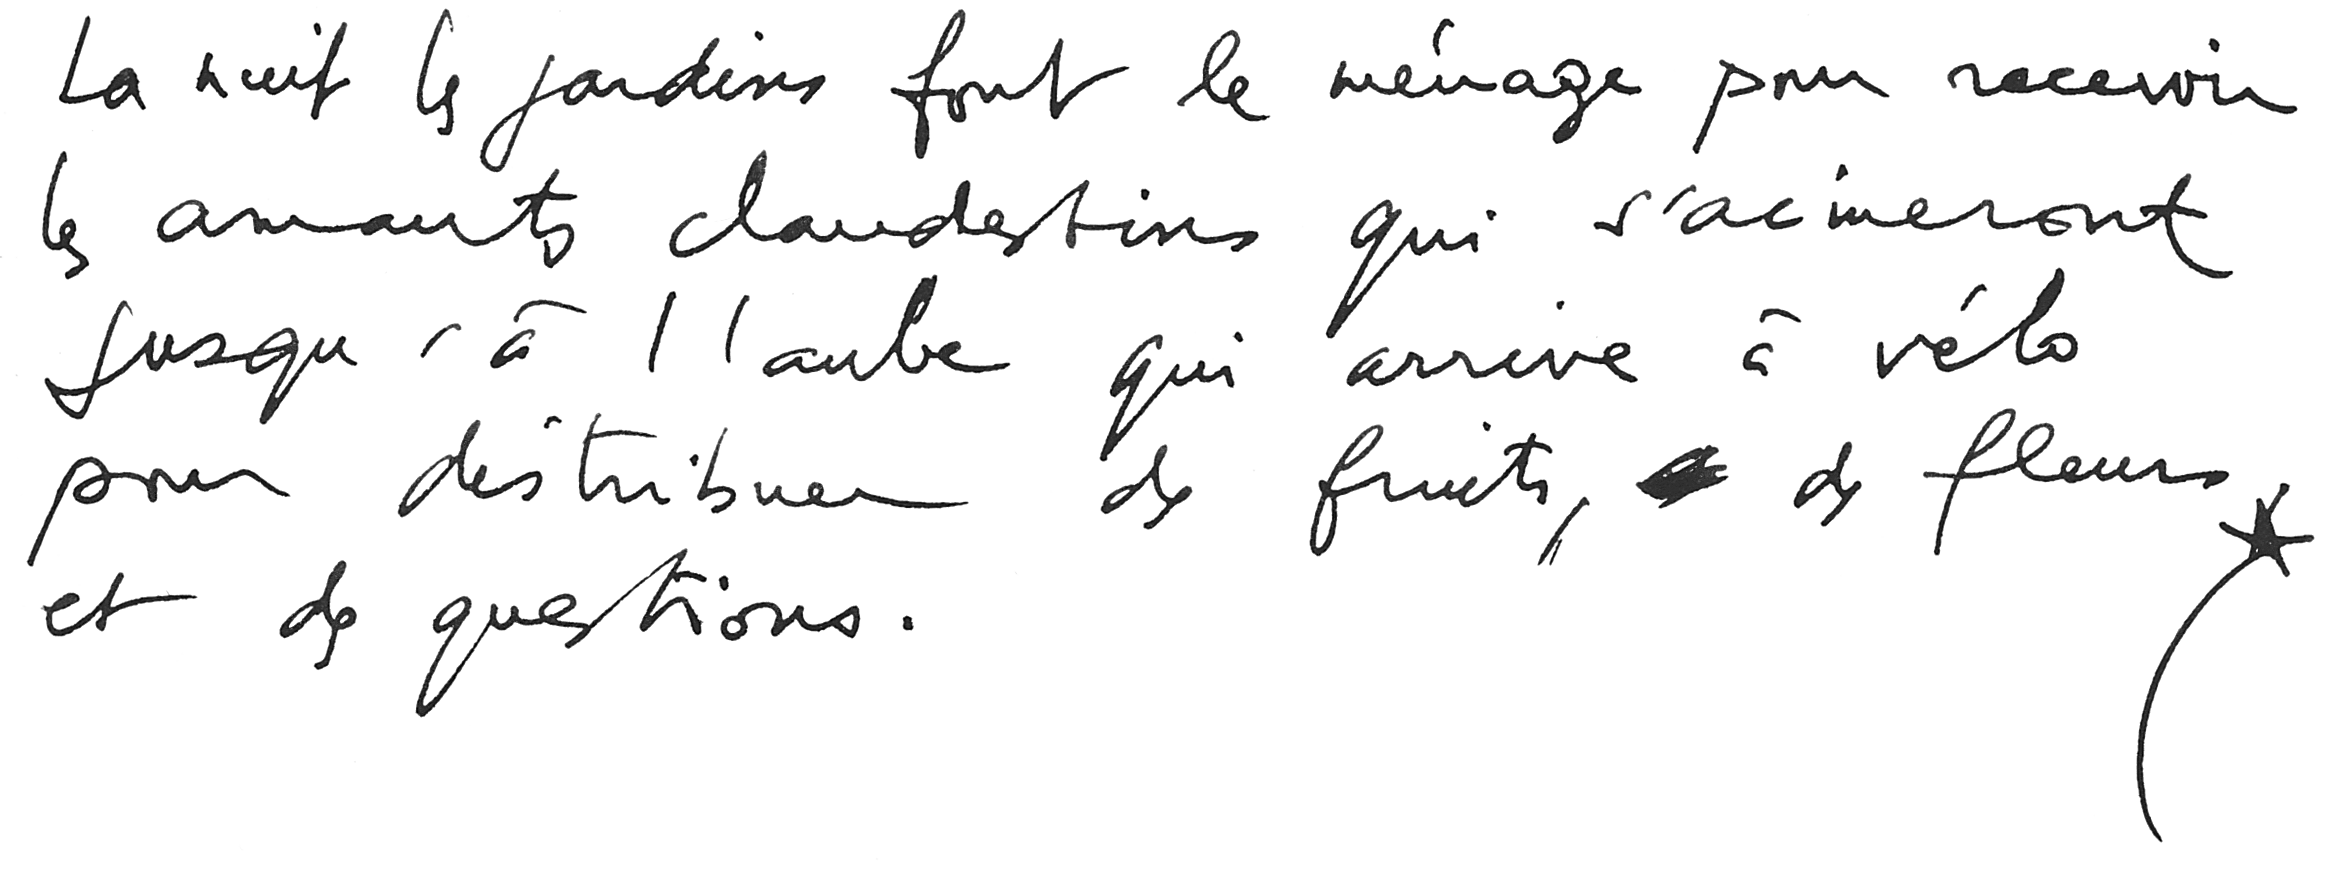 La nuit les jardins font le ménage pour recevoir
les amants clandestins qui s'aimeront
jusqu'à l'aube qui arrive à vélo
pour distribuer des fruits, des fleurs
et des questions.